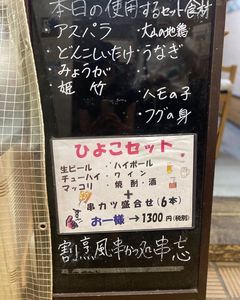 本日の使用するセット食材
アスパラ
・大山の地鶏
・どんこしいたけ
・うなぎ
・みょうが
・姫竹
・ハモの子
・フグの身
ひよこセット
生ビール・ハイボール
チューハイ・ワイン
マッコリ・焼酎・酒
+
串カツ盛合せ(6本)
お一様→1300円(税別)
割烹風串かつ処串志